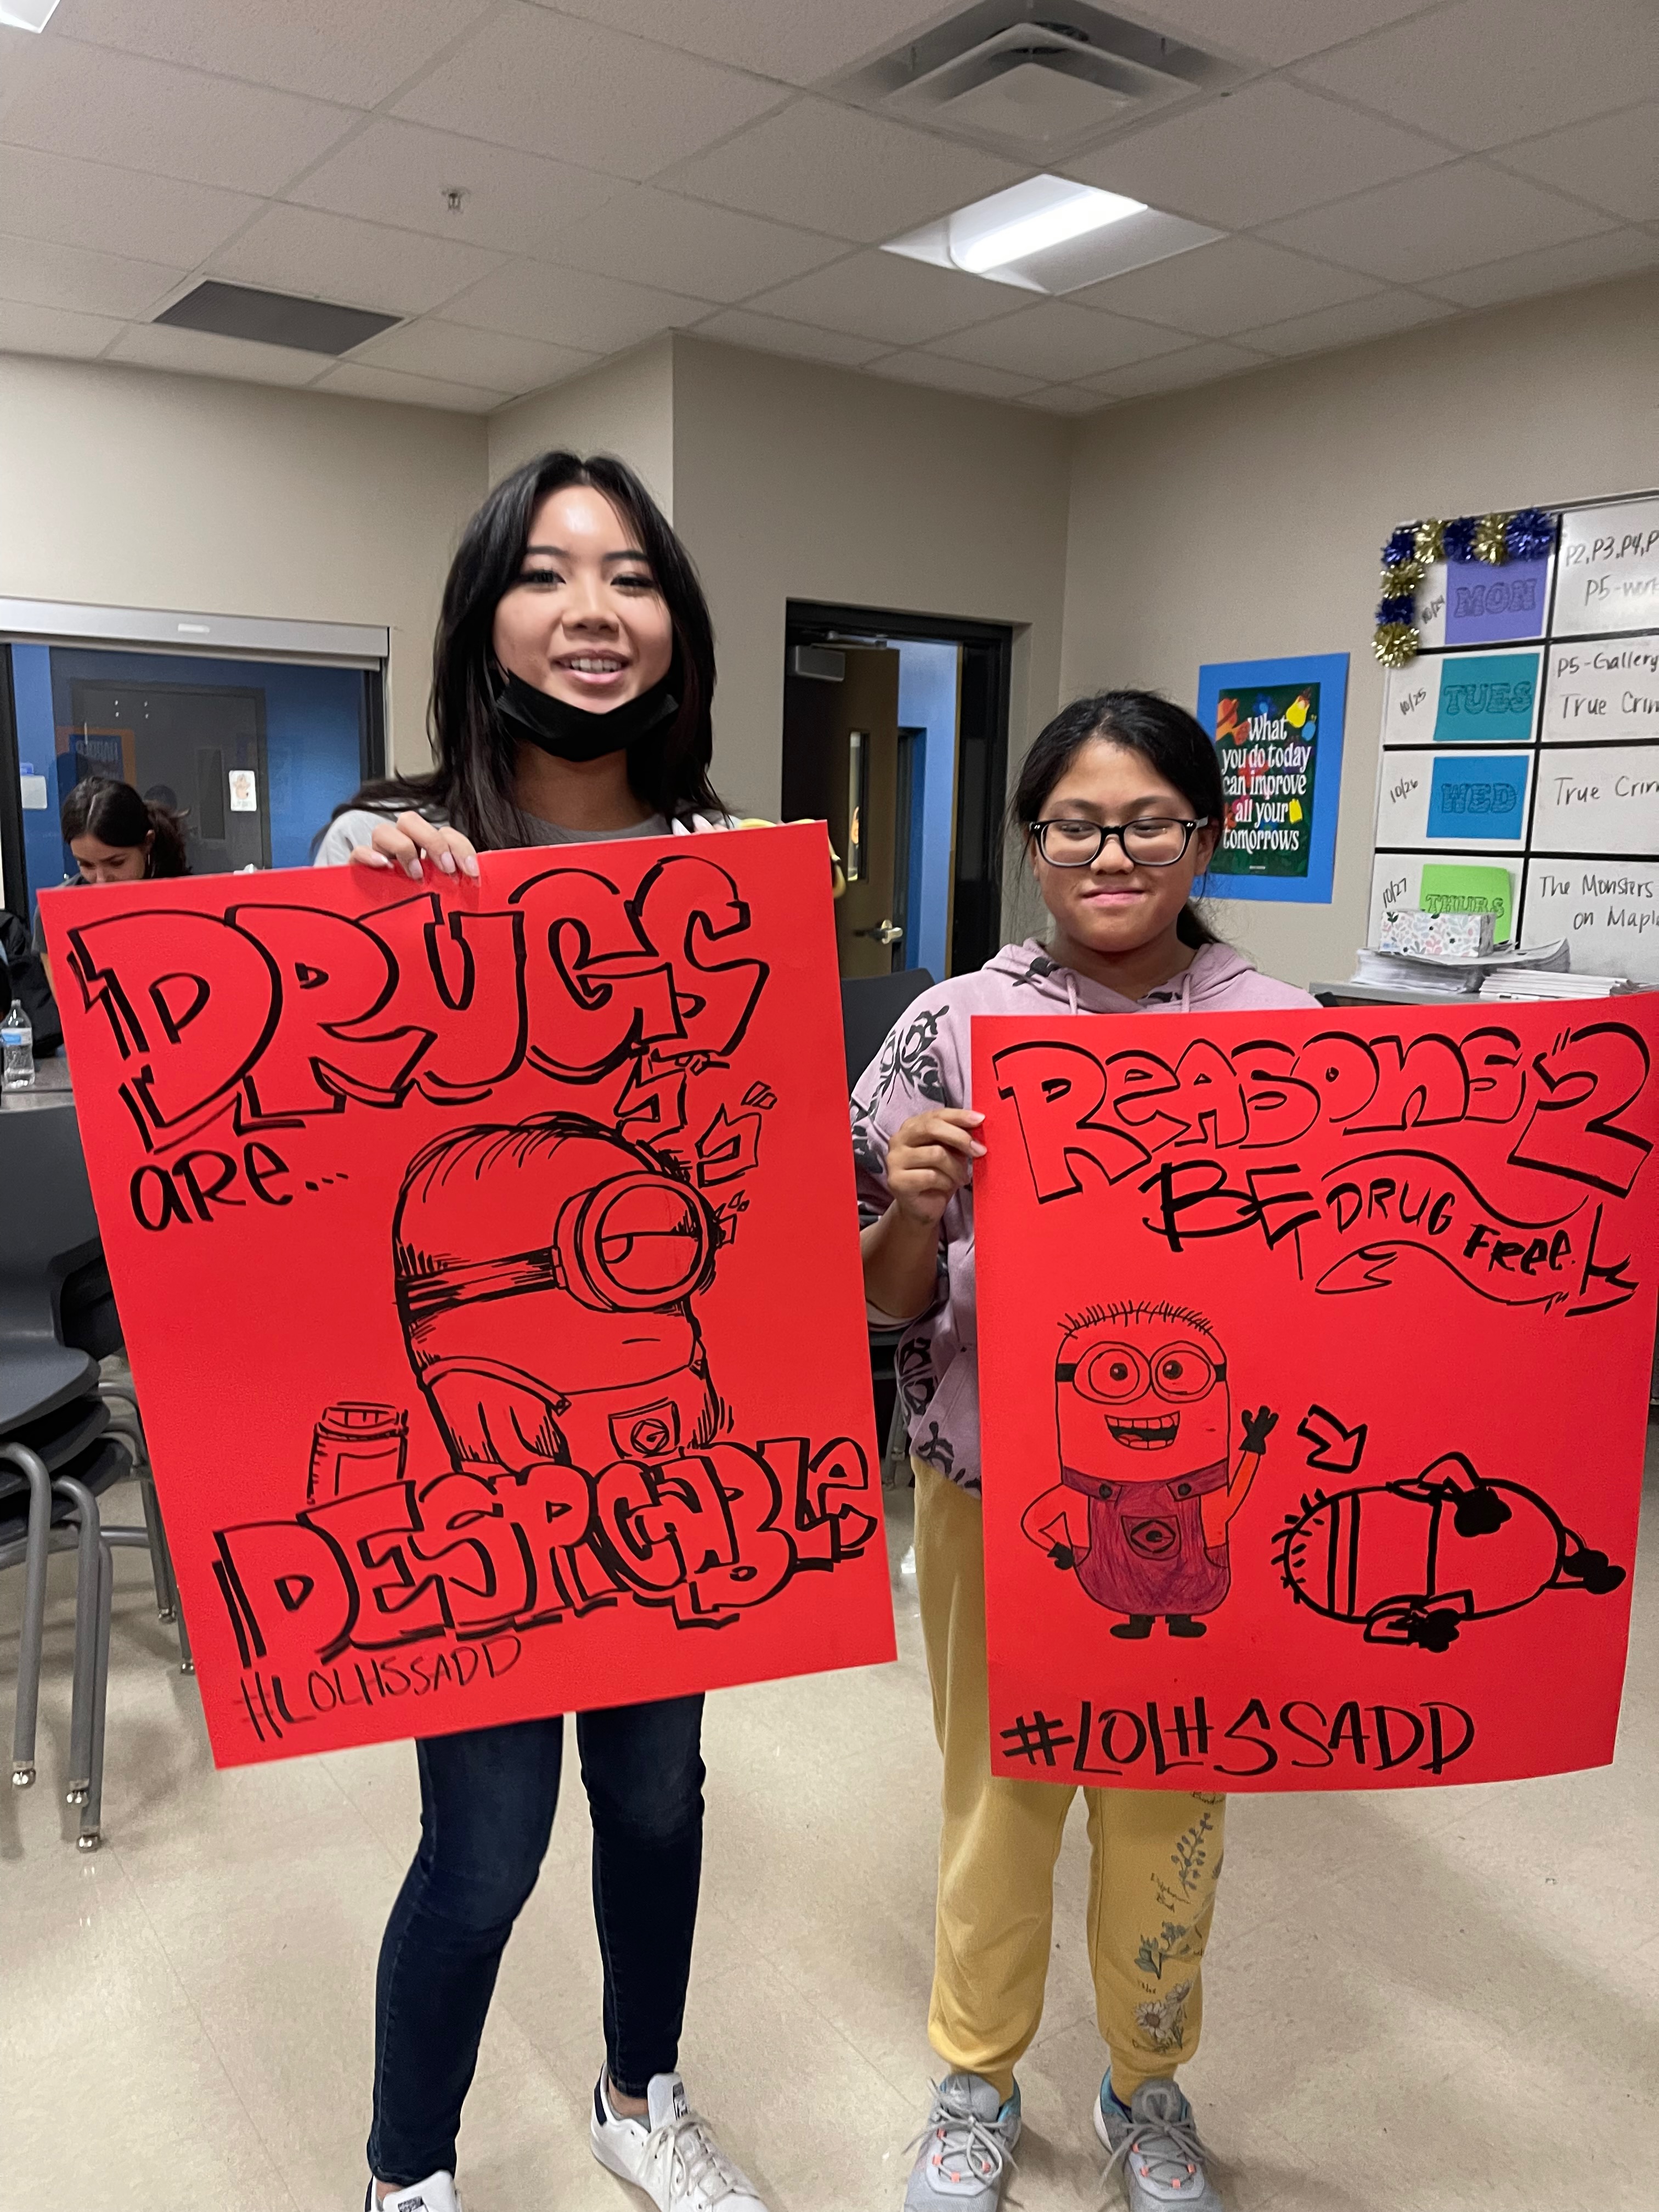 DRUGS
are...
DESPICABLE
#LOLHSSADD
REASONS 2
BE DRUG FREE.
#LOLHSSADD
What
you do today
can improve
all your
tomorrows
10/24 MON
P2, P3, P4, P
P5-work
10/25 TUES
P5-Gallery
True Crim
10/26 WED
True Crim
10/27 THURS
The Monsters
on Mapl